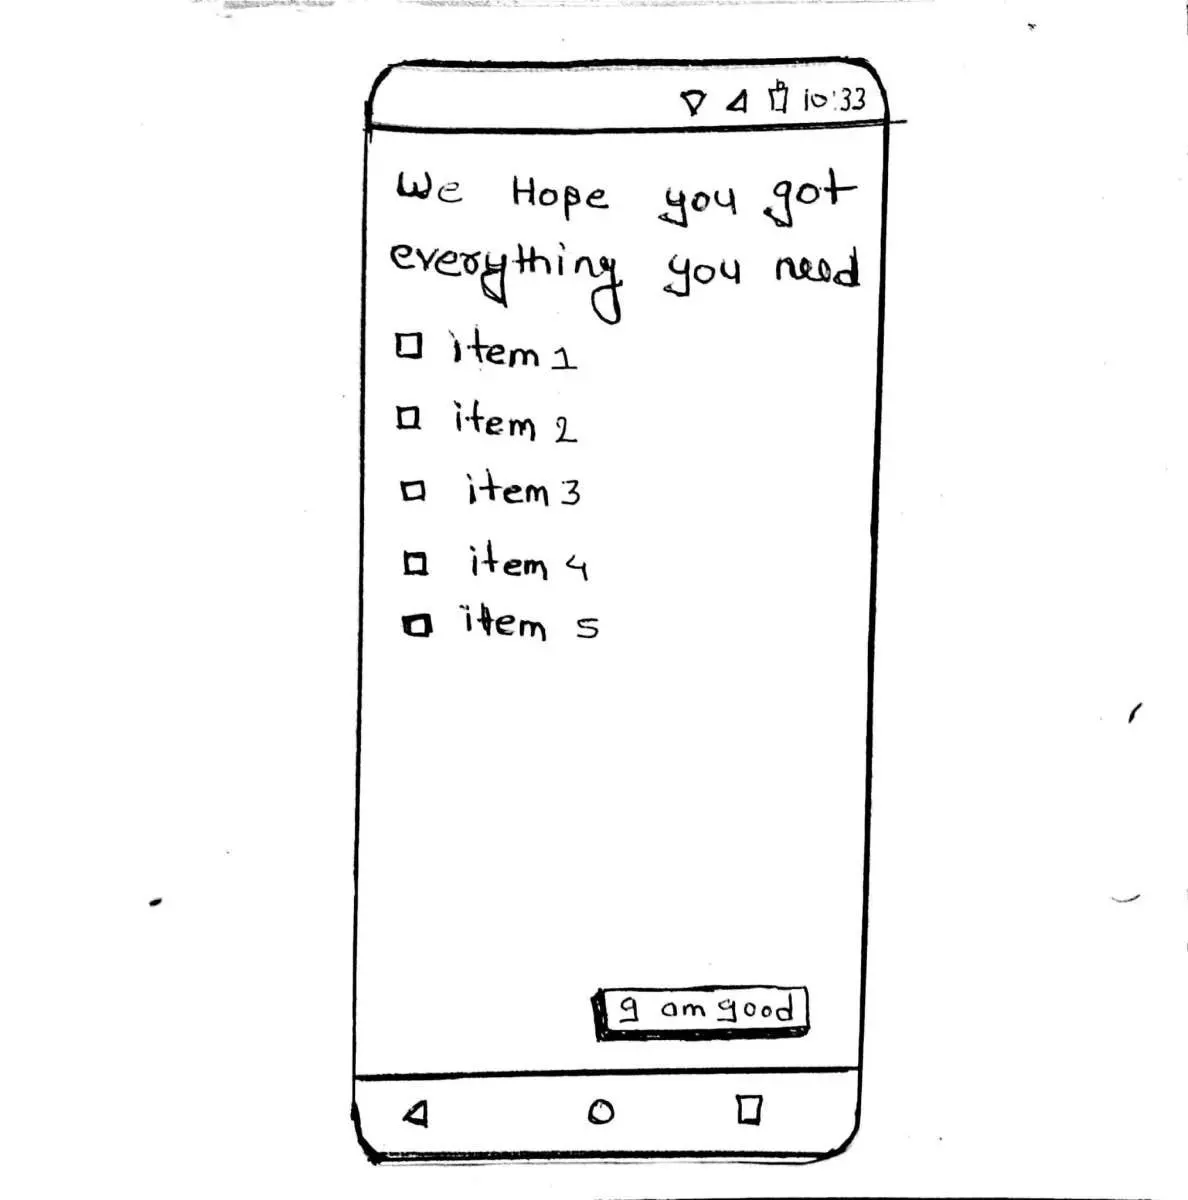 10:33
We Hope you got
everything you need
item 1
item 2
item 3
item 4
item 5
I am good